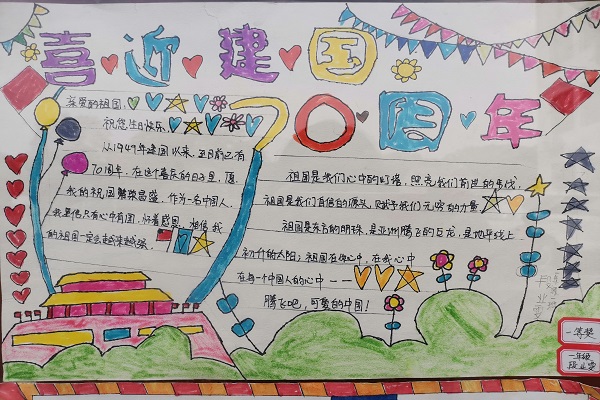 喜迎建国
70周年
亲爱的祖国:
祝您生日快乐
从1949年建国以来,至目前已有
70周年,在这个喜庆的日子里,愿
我的祝国繁荣昌盛,作为一名中国人,
我是但只有心中有国,好着感恩,相信我
的祖国一定会越来越强
祖国是我们心中的灯塔,照亮我们前进的
祖国是我们自信的源头,赋予我们无穷的力量
祖国是东方的明珠,是亚洲腾飞的巨龙,是地平线上
初升的太阳;祖国在你心中,在我心中
在每一个中国人的心中
腾飞吧,可爱的中国!
一等奖
一年级
段业雯